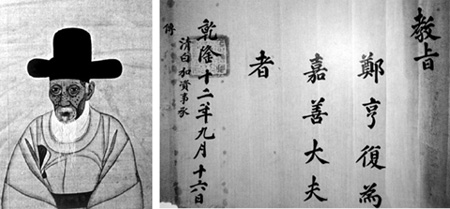 教旨
鄭亨復為
嘉善大夫
者
乾隆十二年九月十六日
清白加資事承
傳